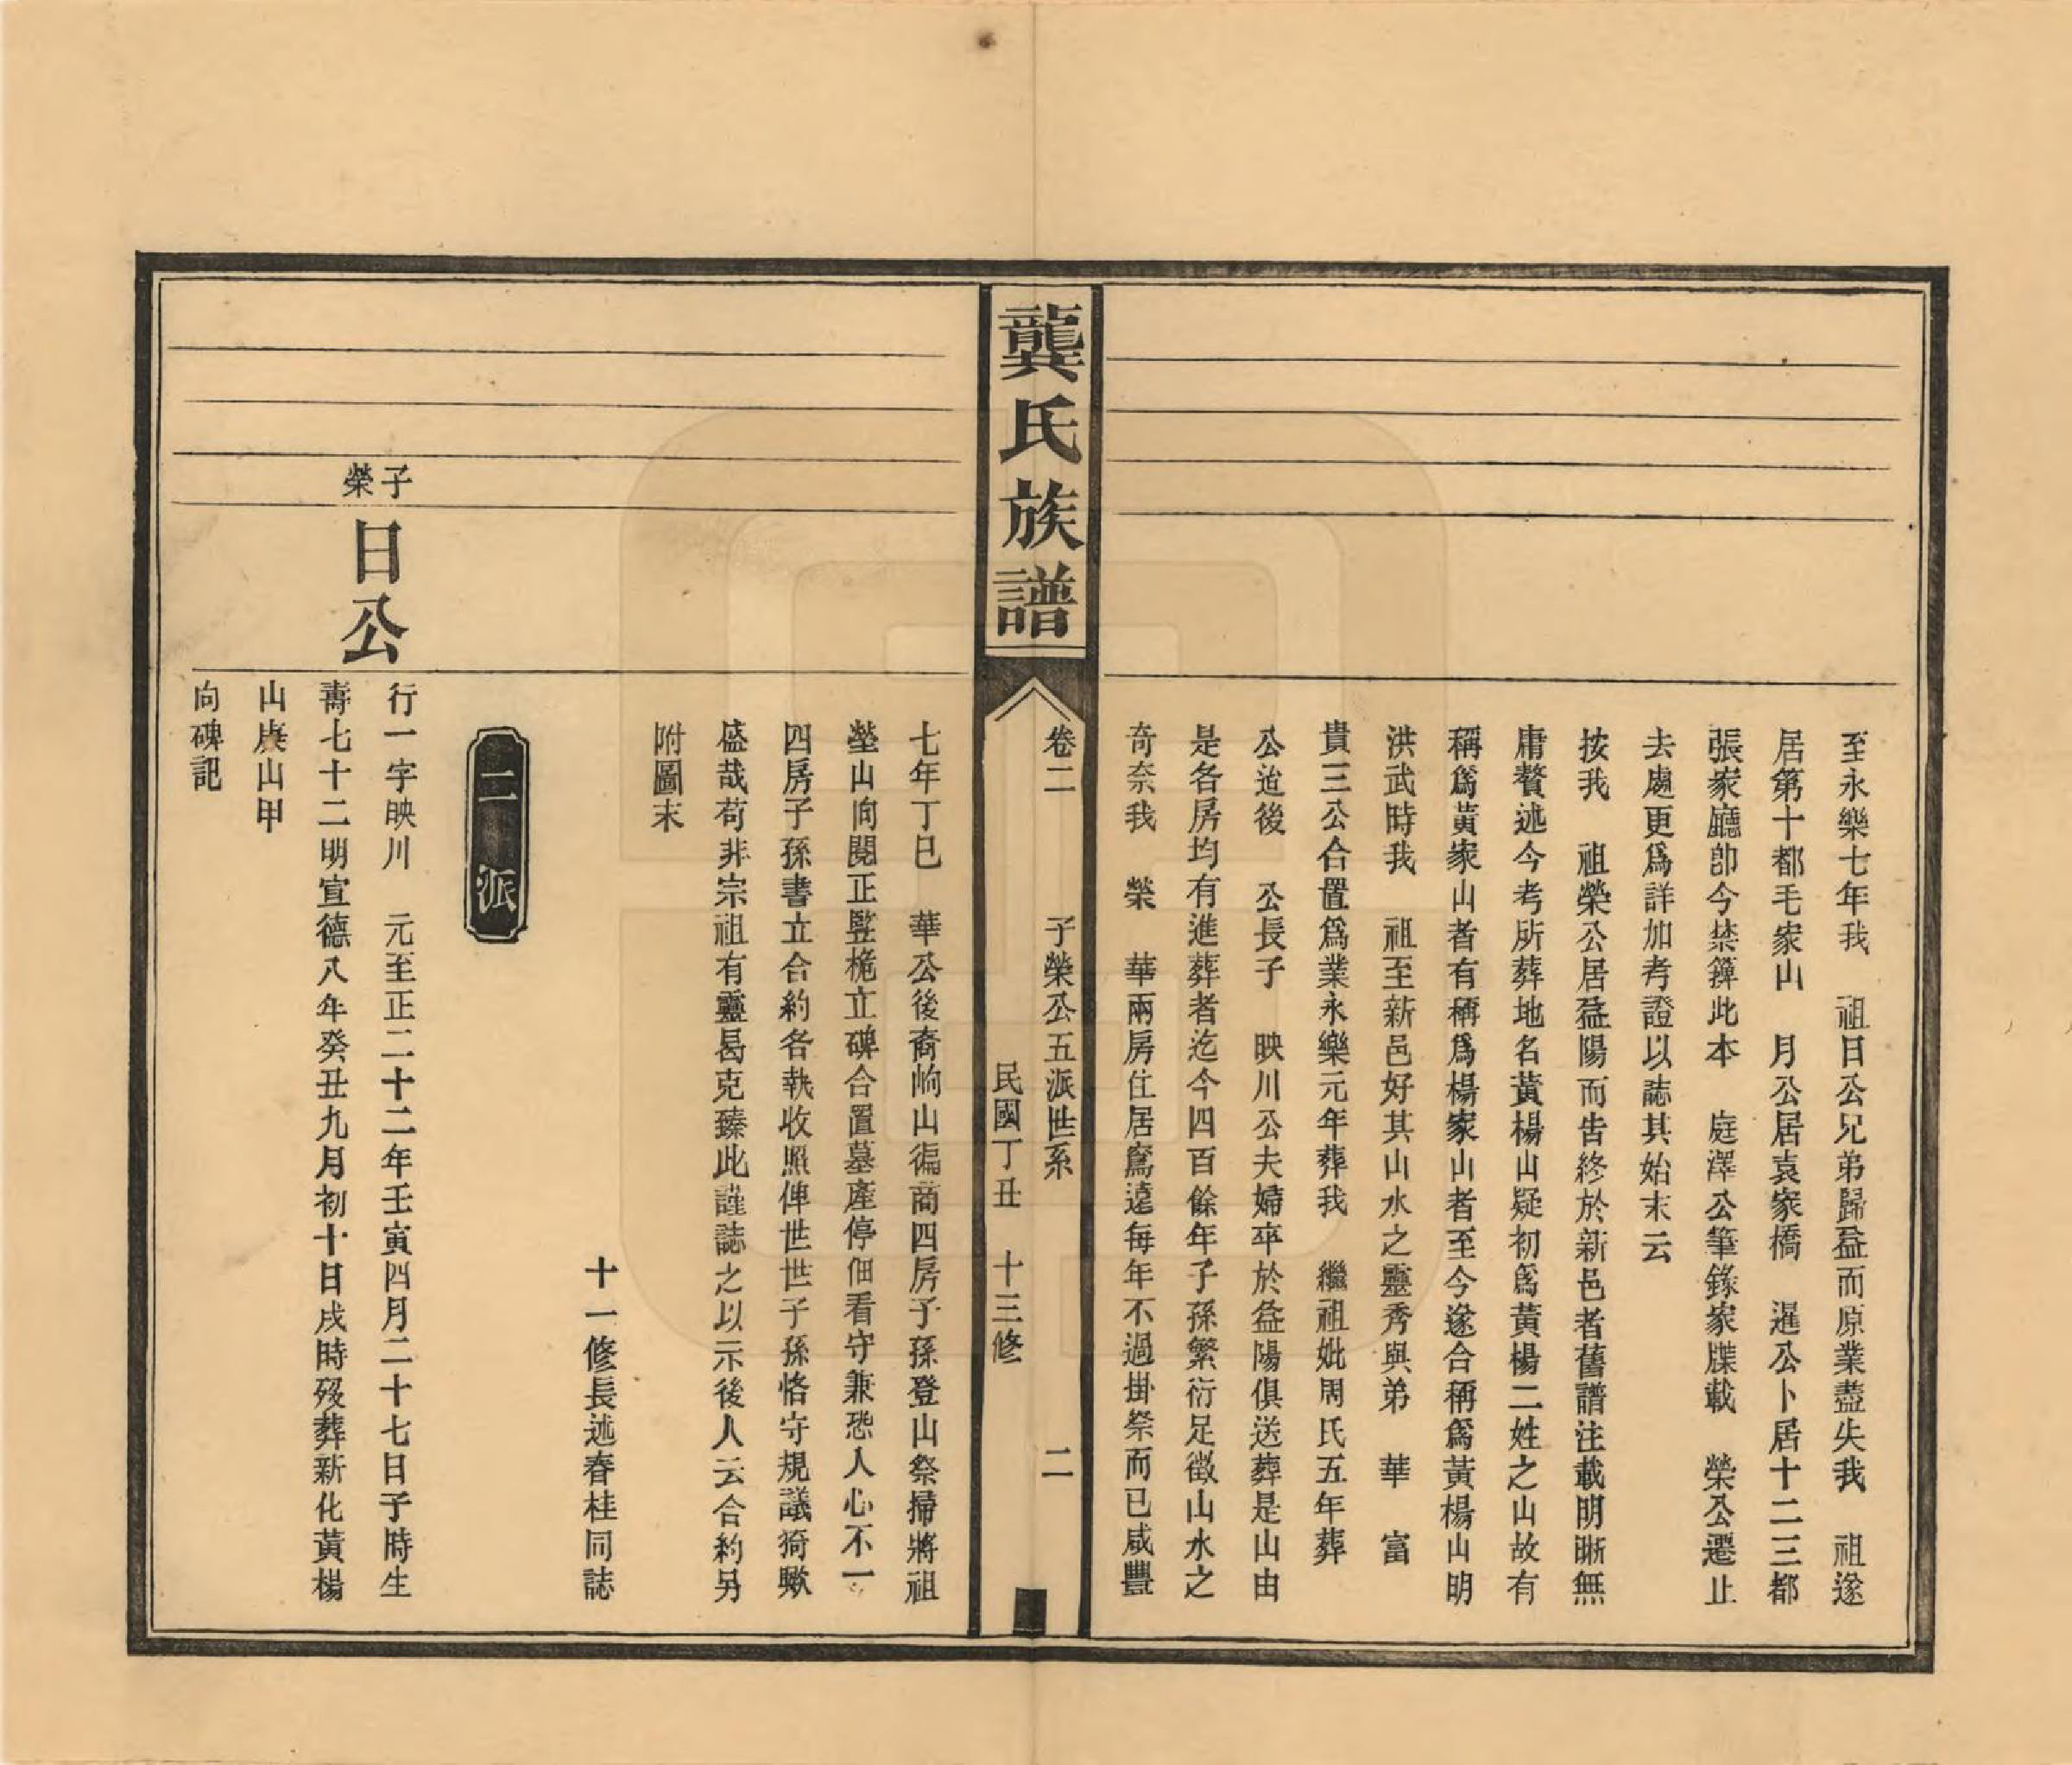 至永樂七年我　祖日公兄弟歸益而原業盡失我　祖遂
居第十都毛家山　月公居袁家橋　暹公卜居十二三都
張家廳卽今禁簰此本　庭澤公筆錄家牒載　榮公遷止
去處更爲詳加考證以誌其始末云
按我　祖榮公居益陽而告終於新邑者舊譜注載明晰無
庸贅述今考所葬地名黃楊山疑初爲黃楊二姓之山故有
稱爲黃家山者有稱爲楊家山者至今遂合稱爲黃楊山明
洪武時我　祖至新邑好其山水之靈秀與弟　華　富
貴三公合置爲業永樂元年葬我　繼祖妣周氏五年葬
公迨後　公長子　映川公夫婦卒於益陽俱送葬是山由
是各房均有進葬者迄今四百餘年子孫繁衍足徵山水之
奇奈我　榮　華兩房住居窵遠每年不過掛祭而已咸豐
龔氏族譜
卷二　子榮公五派世系　二
民國丁丑　十三修
七年丁巳　華公後裔峋山徧商四房子孫登山祭掃將祖
塋山向閱正豎桅立碑合置墓產停佃看守兼恐人心不一
四房子孫書立合約各執收照俾世世子孫恪守規議猗歟
盛哉苟非宗祖有靈曷克臻此謹誌之以示後人云合約另
附圖末
十一修長述春桂同誌
二派
子榮
日公
行一字映川　元至正二十二年壬寅四月二十七日子時生
壽七十二明宣德八年癸丑九月初十日戌時歿葬新化黃楊
山庚山甲
向碑記